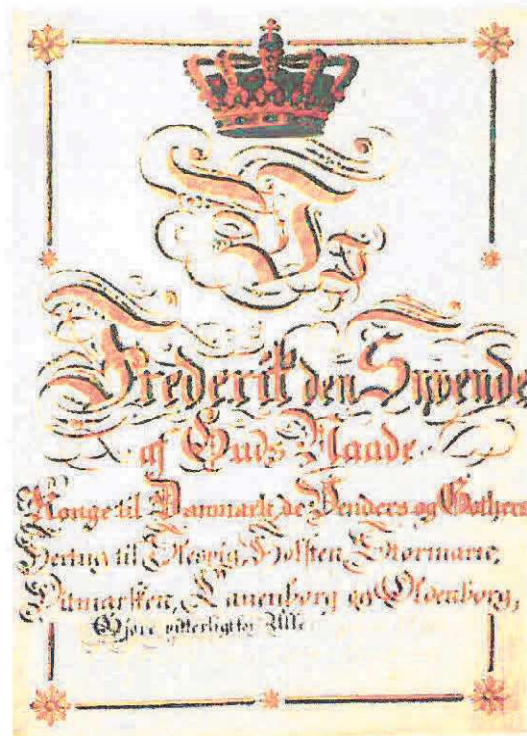 Vi
Frederik den Syvende
af Guds Naade
Konge til Danmark de Venders og Gothers
Hertug til Slesvig, Holsten, Stormarn,
Ditmarsken, Lauenborg og Oldenborg,
Gjøre vitterligt for Alle